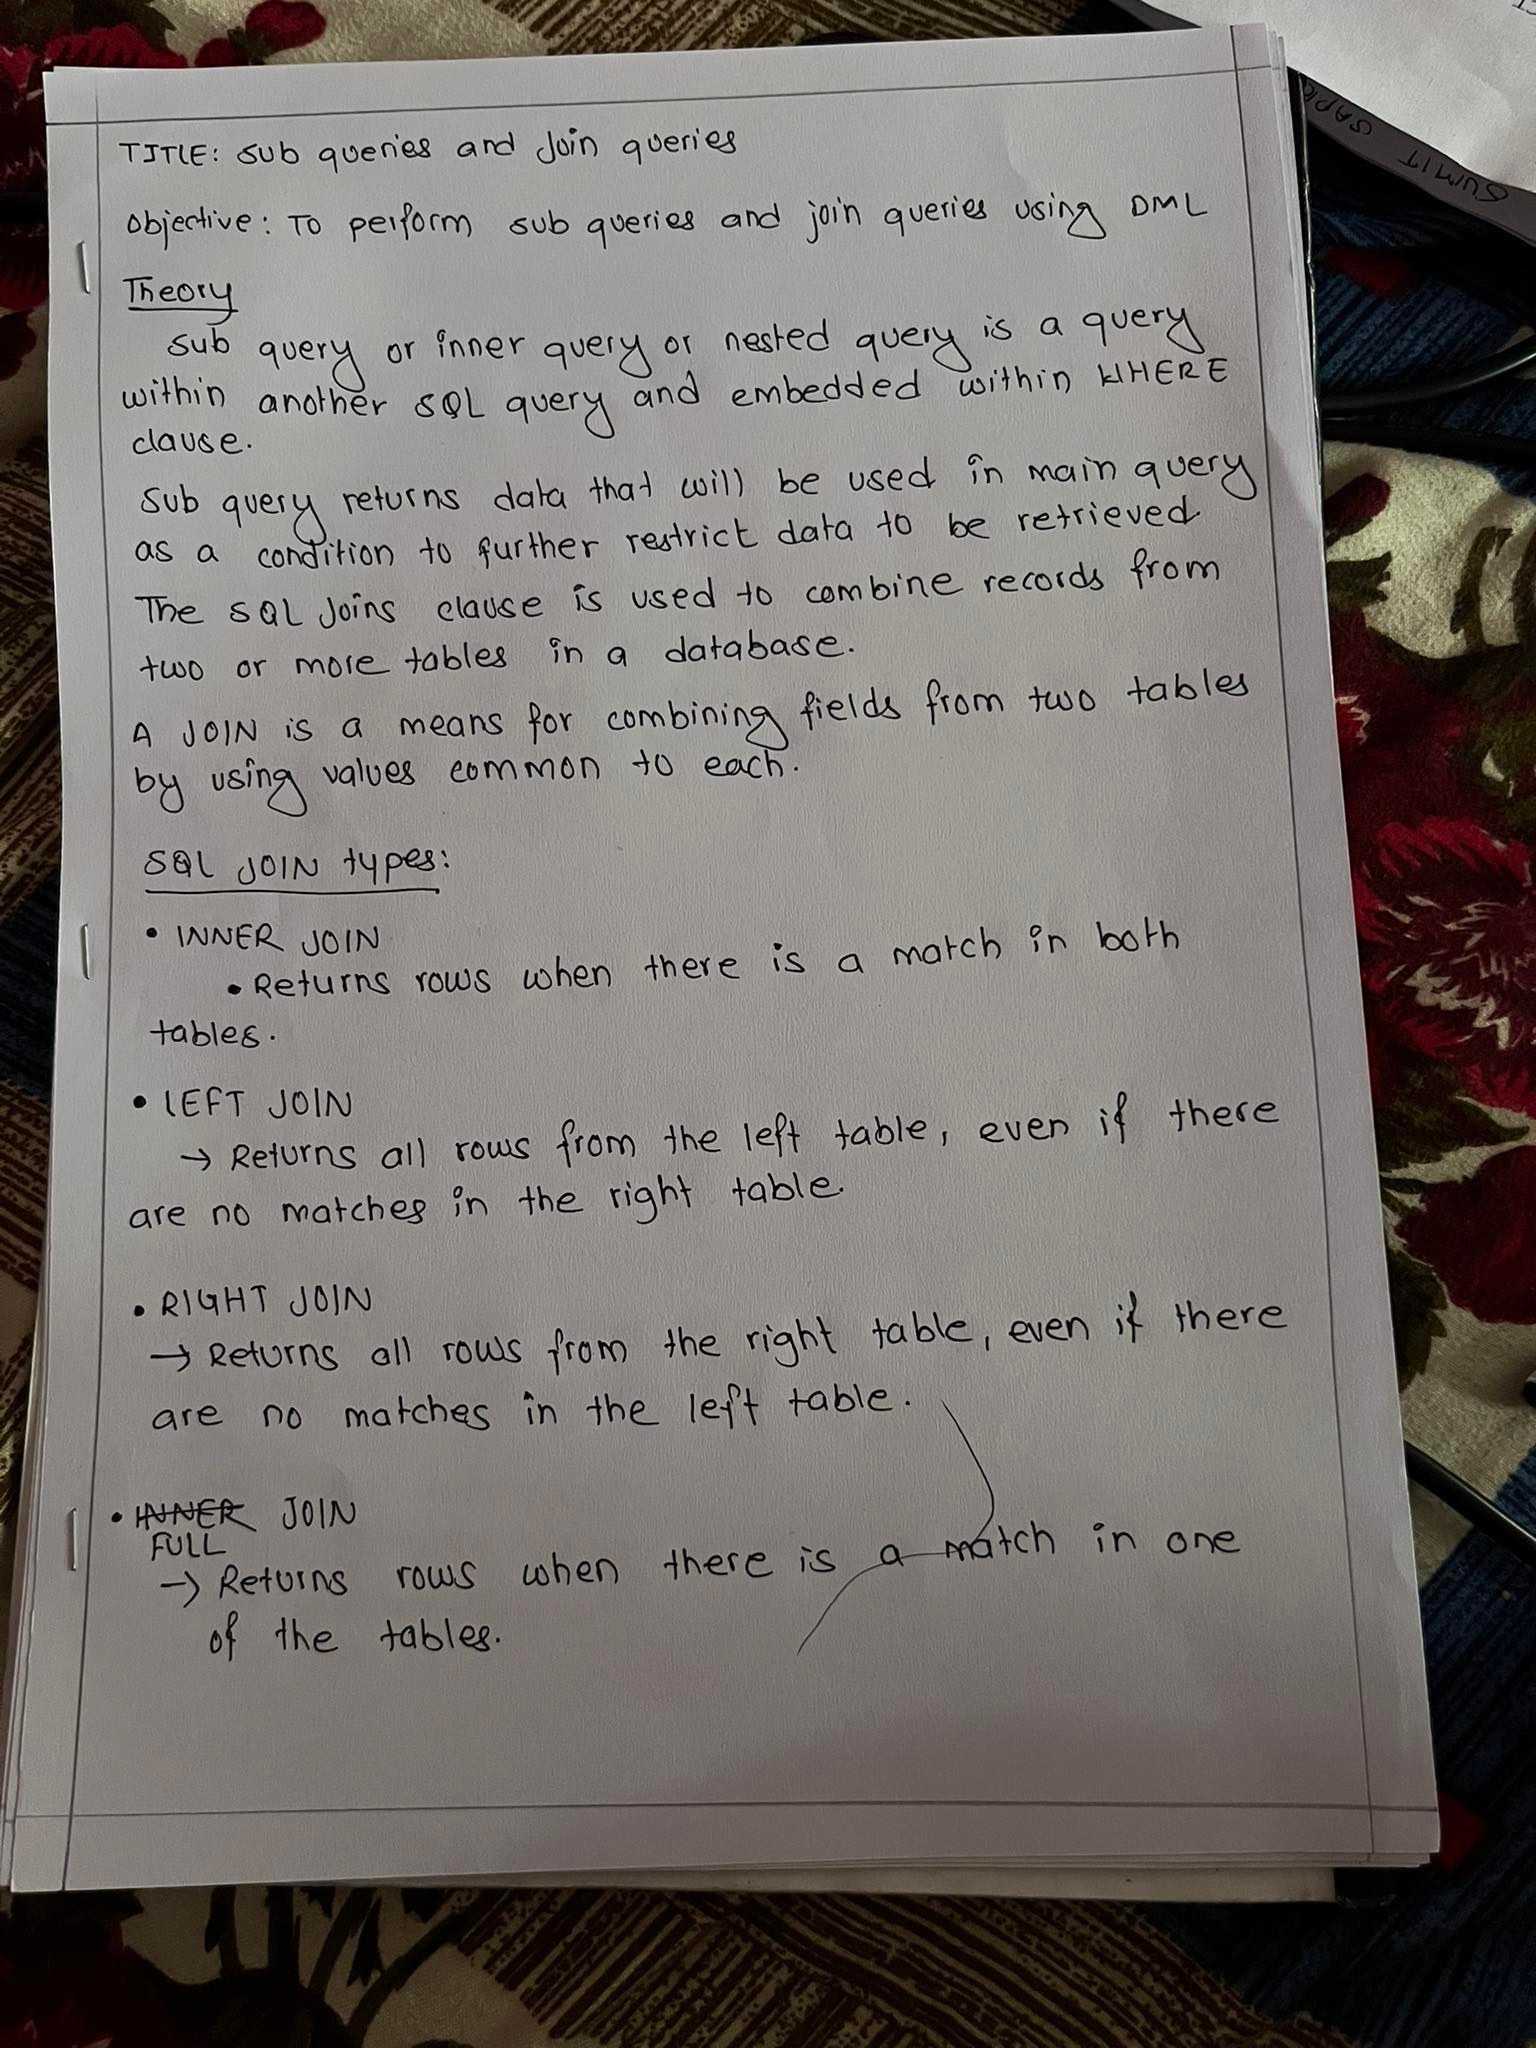 TITLE: sub queries and Join queries
Objective: To perform sub queries and join queries using DML
Theory
Sub query or inner query or nested query is a query
within another SQL query and embedded within WHERE
clause.
Sub query returns data that will be used in main query
as a condition to further restrict data to be retrieved.
The SQL Joins clause is used to combine records from
two or more tables in a database.
A JOIN is a means for combining fields from two tables
by using values common to each.
SQL JOIN types:
• INNER JOIN
• Returns rows when there is a match in both
tables.
• LEFT JOIN
→ Returns all rows from the left table, even if there
are no matches in the right table.
• RIGHT JOIN
→ Returns all rows from the right table, even if there
are no matches in the left table.
• INNER JOIN
FULL
→ Returns rows when there is a match in one
of the tables.
SUMIT